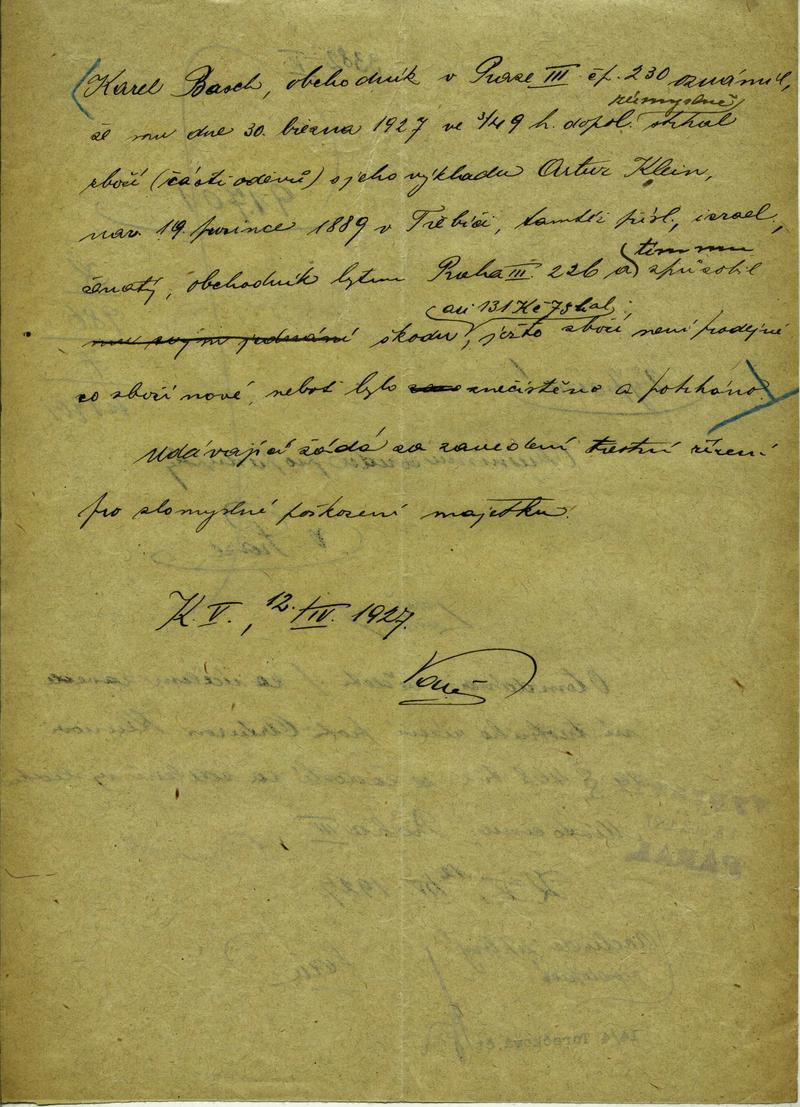 Karel Basch, obchodník v Praze III čp. 230 oznámil,
že mu dne 30. března 1927 ve 3/4 9 h. dopol. zúmyslně strhal
zboží (části oděvů) s jeho výkladu Artur Klein,
nar. 19. prosince 1889 v Třebíči, tamtéž přísl., israel.,
ženatý, obchodník bytem Praha III. 226 a tím mu způsobil
mu svým jednáním škodu asi 131 Kč 75 hal., ježto zboží není prodejné
co zboží nové, neboť bylo znečistěno a potrháno.
Udávající žádá za zavedení trestní řízení
pro zlomyslné poškození majetku.
K. V., 12./IV. 1927.